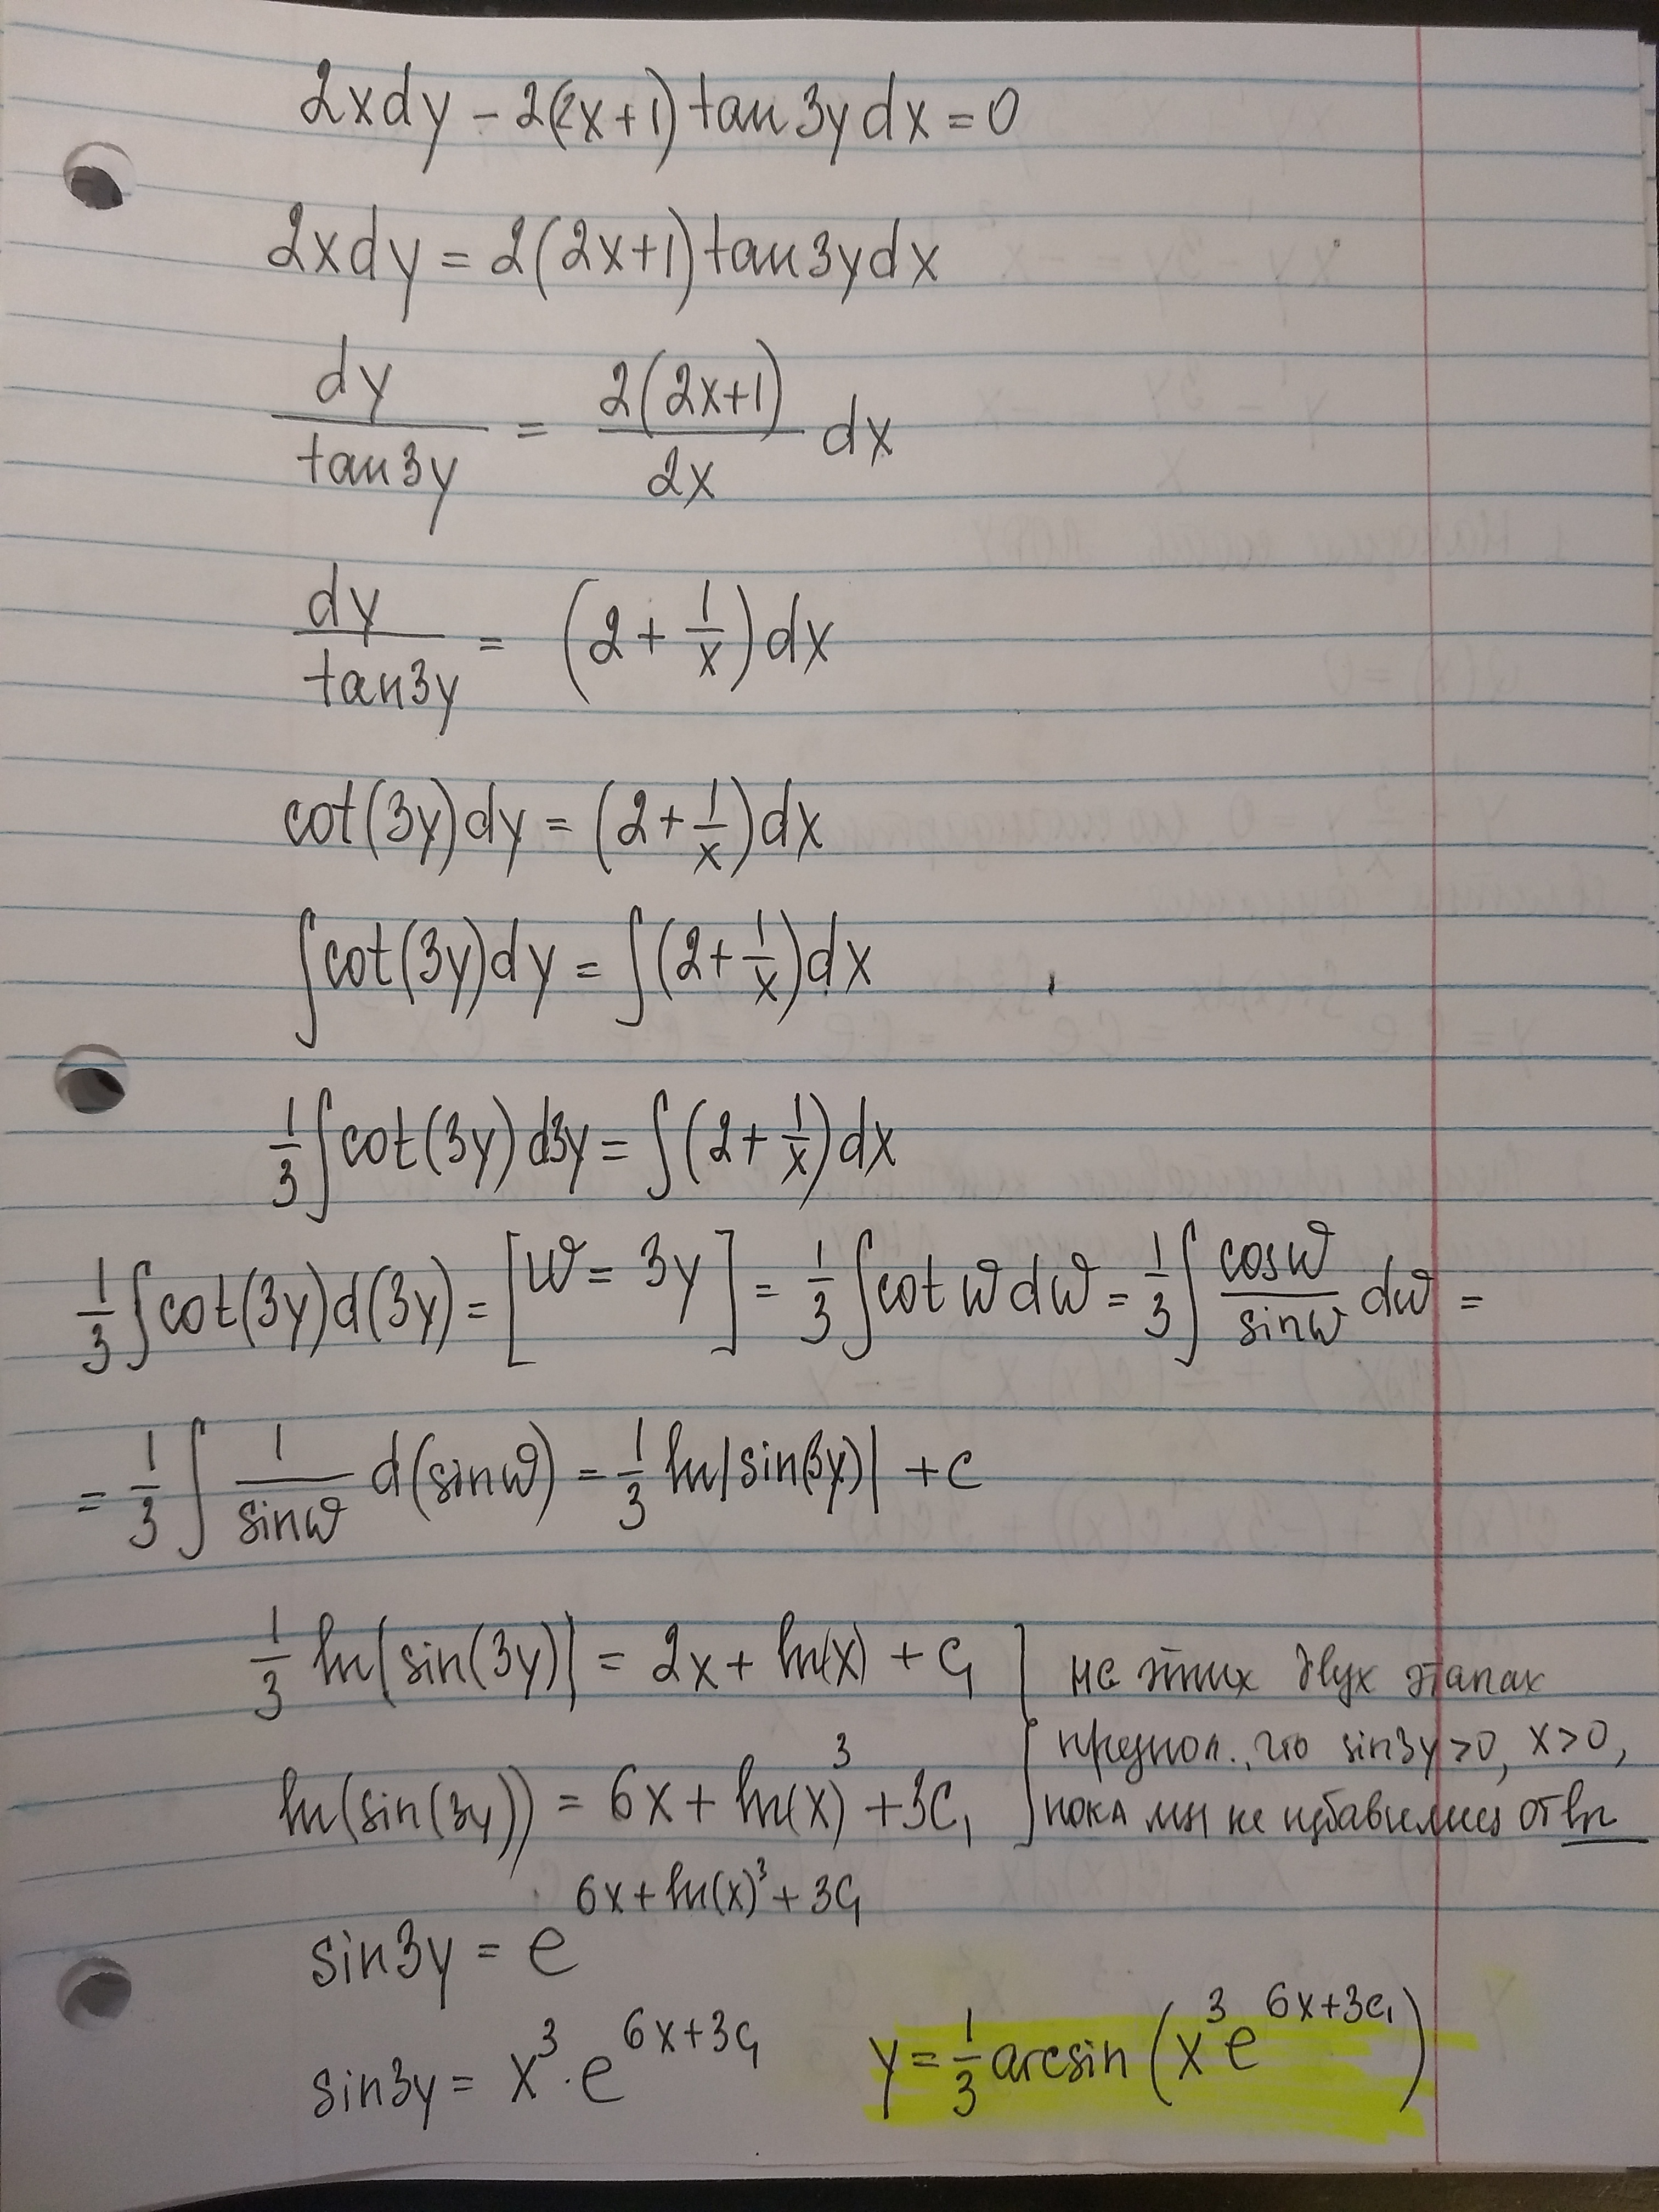 2xdy − 2(2x+1)tan3ydx = 0
2xdy = 2(2x+1)tan3ydx
dy/tan3y = 2(2x+1)/2x dx
dy/tan3y = (2 + 1/x)dx
cot(3y)dy = (2 + 1/x)dx
∫cot(3y)dy = ∫(2 + 1/x)dx
1/3 ∫cot(3y)d3y = ∫(2 + 1/x)dx
1/3 ∫cot(3y)d(3y) = [w = 3y] = 1/3 ∫cot w dw = 1/3 ∫ cosw/sinw dw =
= 1/3 ∫ 1/sinw d(sinw) = 1/3 ln|sin(3y)| + c
1/3 ln|sin(3y)| = 2x + ln(x) + C₁ ] на этих двух этапах
предпол., что sin3y>0, x>0,
ln(sin(3y)) = 6x + ln(x)³ + 3C₁ ] пока мы не избавились от ln
sin3y = e^(6x+ln(x)³+3C₁)
sin3y = x³·e^(6x+3C₁) y = 1/3 arcsin(x³e^(6x+3C₁))